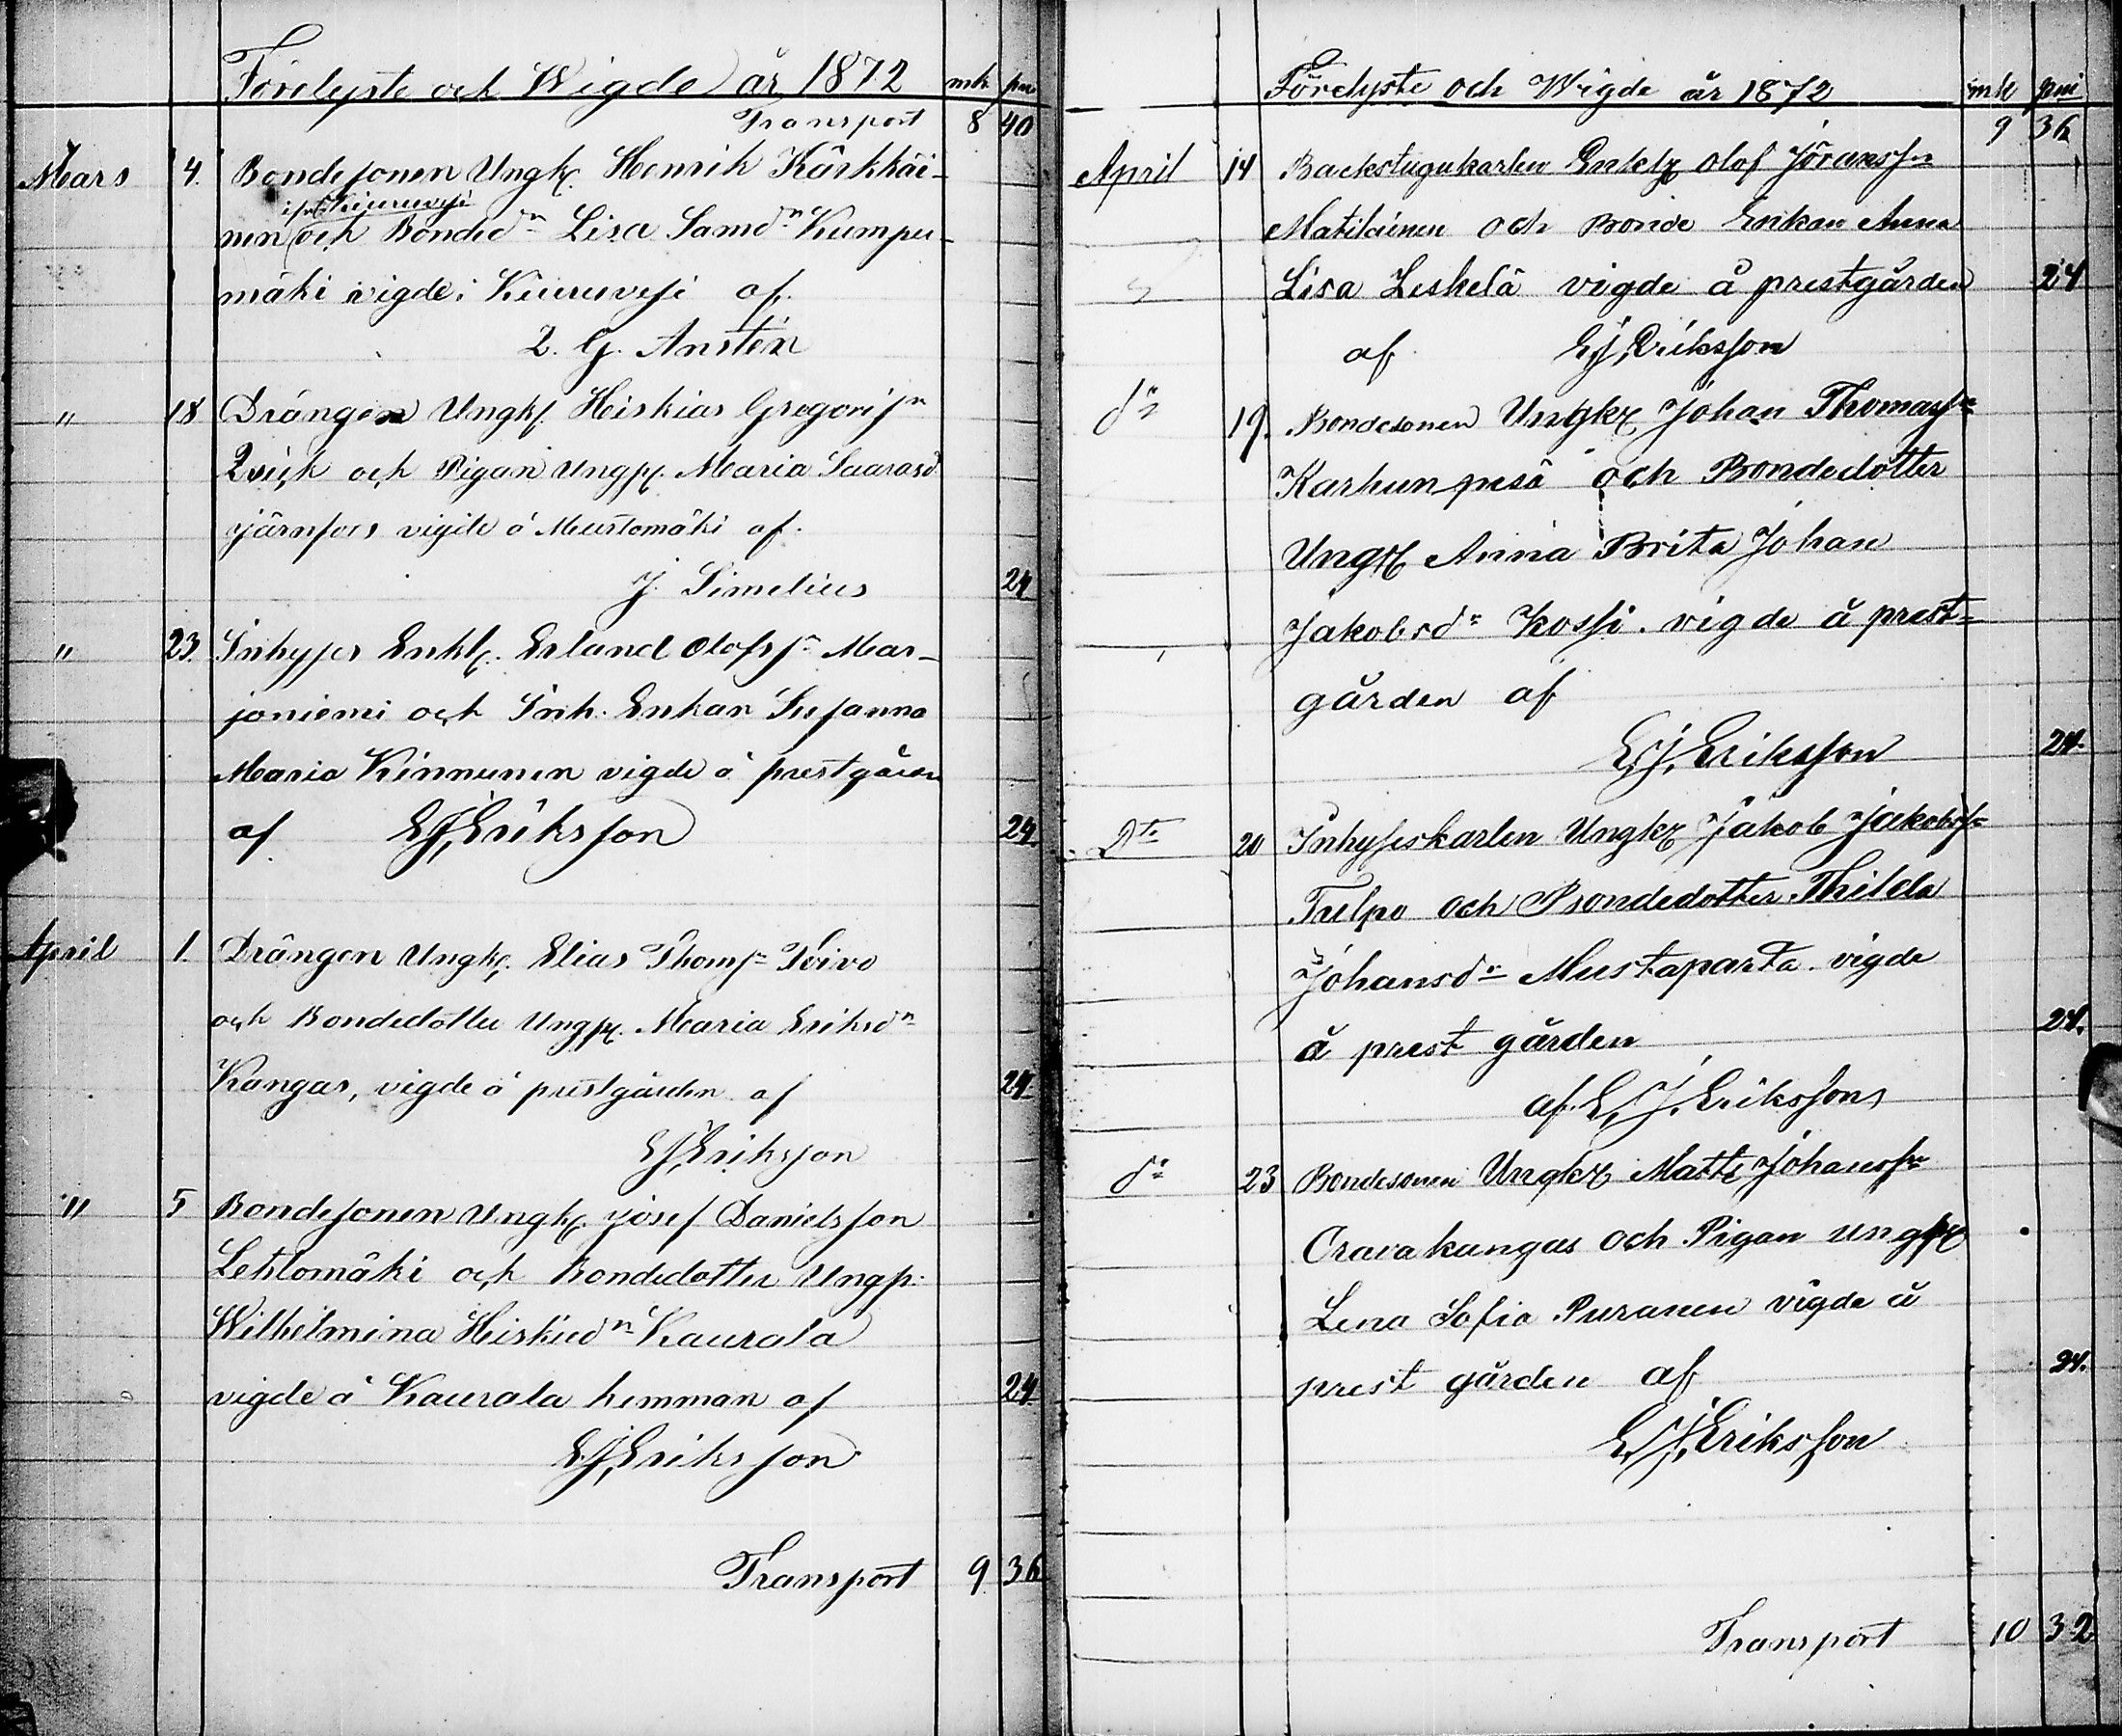 Förelyste och Wigde år 1872 mk pni
Transport 8 40
Mars 4. Bondesonen Ungk. Henrik Kärkkäi-
ifrå Kiuruvesi
nen och Bonded:n Lisa Samd:n Kumpu-
mäki vigde i Kiuruvesi af
L. G. Anstén
" 18 Drängen Ungk. Heiskias Gregorisn
Qvick och Pigan Ungp. Maria Saarasd.
Järnfors vigde å Mustomäki af
J. Simelius 24
" 23. Inhyses Enkl. Erland Olofss:n Mar-
joniemi och Inh. Enkan Susanna
Maria Kinnunen vigde å prestgården
af EJ, Eriksson 24
April 1. Drängen Ungk. Elias Thoms:n Toivo
och Bondedotter Ungp. Maria Eriksd:n
Kangas, vigde å prestgården af 24
EJ, Eriksson
" 5 Bondesonen Ungk. Josef Danielsson
Lehtomäki och Bondedotter Ungp.
Wilhelmina Heiskied:n Kaurala
vigde å Kaurala hemman af 24
EJ, Eriksson
Transport 9. 36
Förelyste och Wigde år 1872 mk pni
9 36
April 14 Backstugukarlen Enklg Olof Göranss:n
Matilainen och Bonde Enkan Anna
Lisa Leskelä vigde å prestgården 24
af EJ, Eriksson
d:o 19. Bondesonen Ungkg Johan Thomass:n
Karhunpesä och Bondedotter
Ungp Anna Brita Johan
Jakobsd:r Kossi. vigde å prest=
gården af
E, J, Eriksson 24.
D:to 20 Inhyseskarlen Ungkg Jakob Jakobss:n
Tulpo och Bondedotter Thilda
Johansd:r Mustaparta. vigde
å prest gården 24.
af. E, J. Eriksson
d:o 23 Bondesonen Ungkg Matts Johanss:n
Oravakangas och Pigan ungpg
Lena Sofia Puranen vigde å
prest gården af 24.
E, J, Eriksson
Transport 10 32